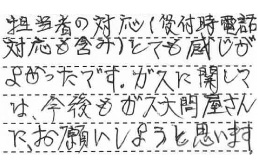 担当者の対応(受付時電話
対応も含み)とても感じが
よかったです。ガスに関して
は、今後もガス大問屋さん
に、お願いしようと思います